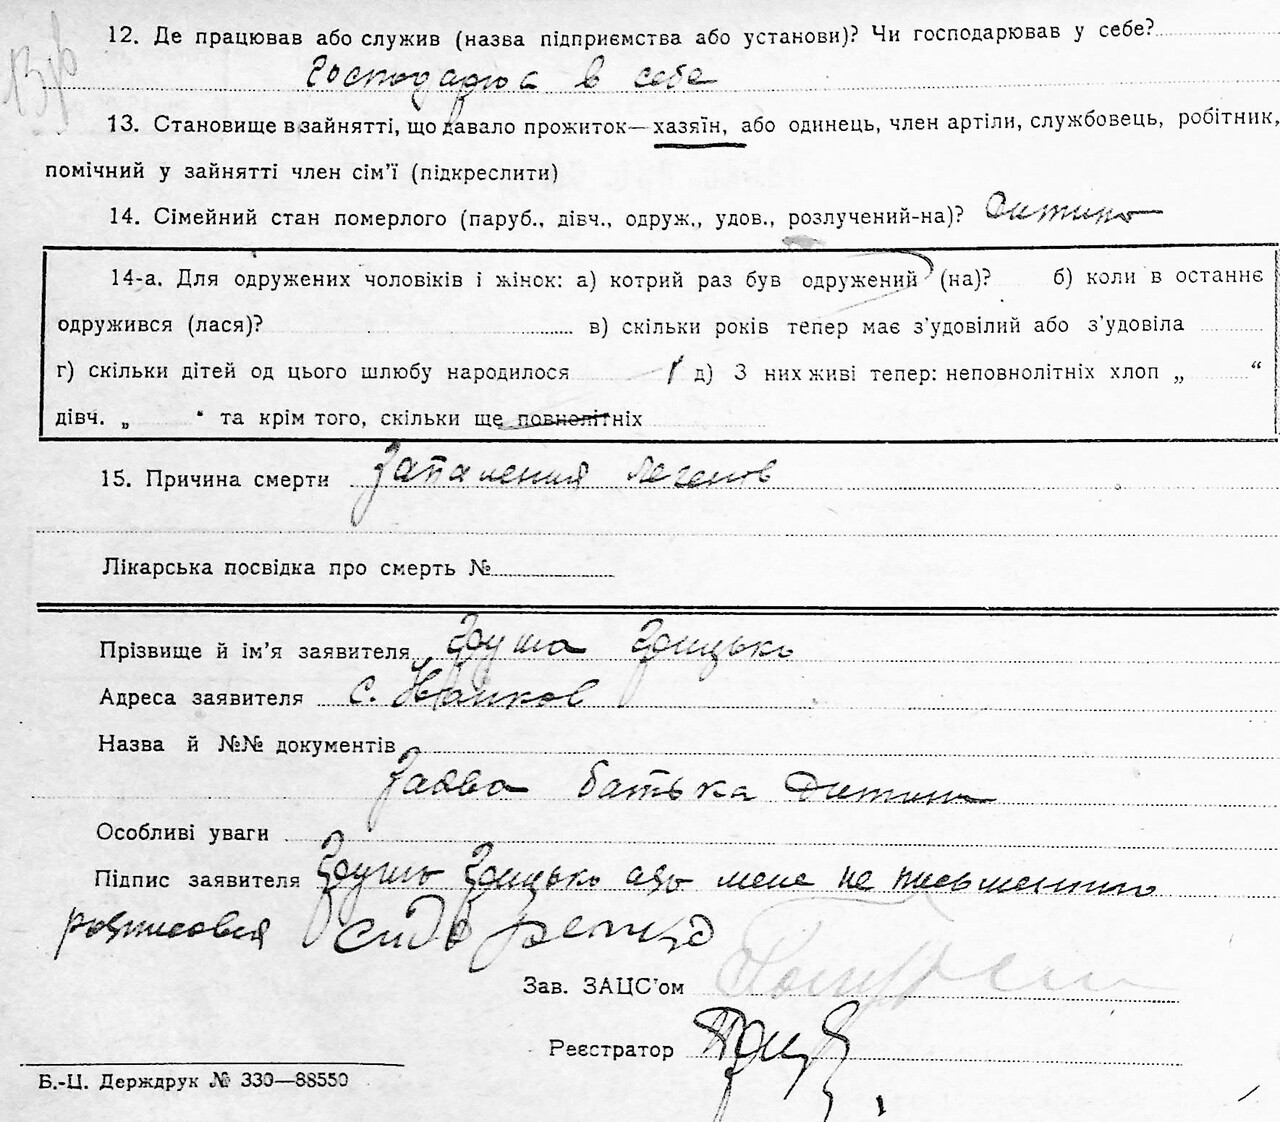 12. Де працював або служив (назва підприємства або установи)? Чи господарював у себе?
Господарює в себе
13. Становище в зайнятті, що давало прожиток—хазяїн, або одинець, член артіли, службовець, робітник,
помічний у зайнятті член сім'ї (підкреслити)
14. Сімейний стан померлого (паруб., дівч., одруж., удов., розлучений-на)? Дитина
14-а. Для одружених чоловіків і жінок: а) котрий раз був одружений (на)? б) коли в останнє
одружився (лася)? в) скільки років тепер має з'удовілий або з'удовіла
г) скільки дітей од цього шлюбу народилося д) З них живі тепер: неповнолітніх хлоп „ “
дівч. „ “ та крім того, скільки ще повнолітніх
15. Причина смерти Запалення легенов
Лікарська посвідка про смерть №
Прізвище й ім'я заявителя Груша Грицько
Адреса заявителя с.
Назва й №№ документів
Заява батька дитини
Особливі уваги
Підпис заявителя Груша Грицько не письменного
росписовся Сидоренко
Зав. ЗАЦС'ом
Реєстратор
Б.-Ц. Держдрук № 330—88550